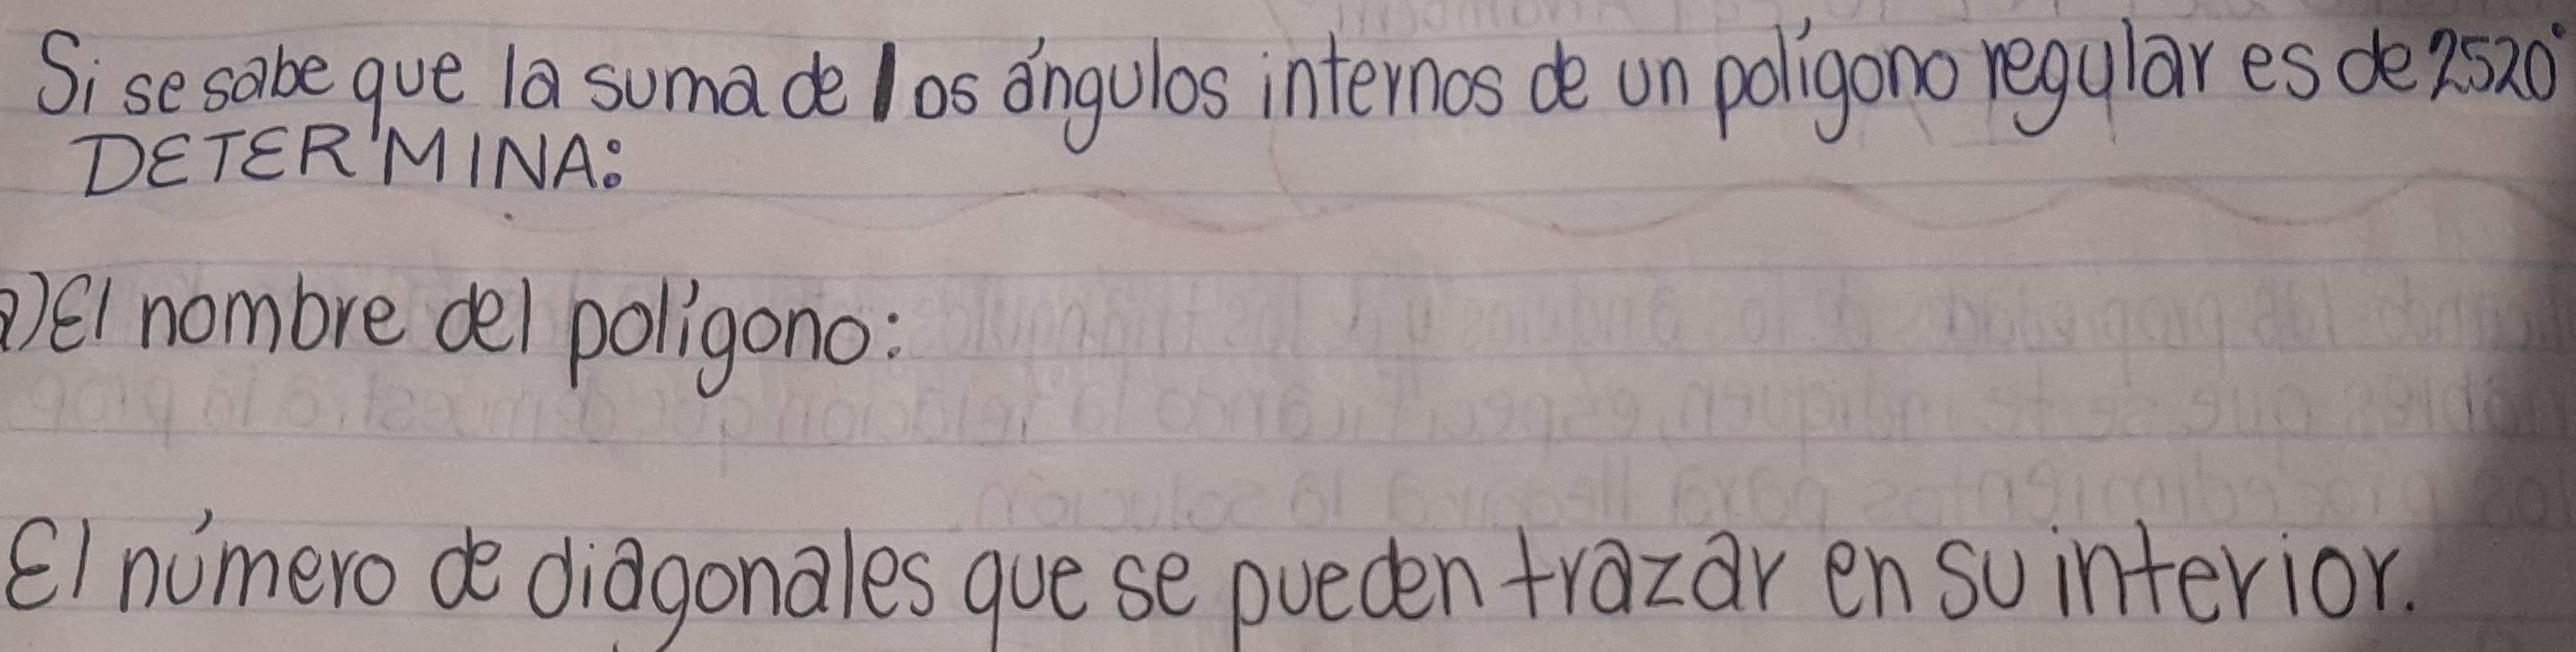 Si se sabe que la suma de los ángulos internos de un polígono regular es de 2520°
DETERMINA:
a) El nombre del polígono:
El número de diagonales que se pueden trazar en su interior.